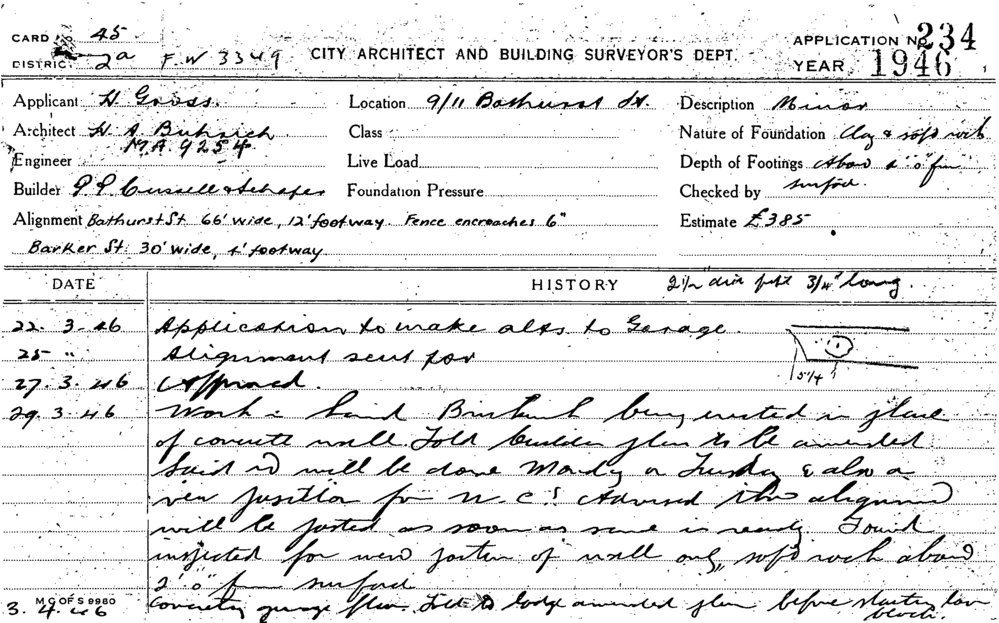 CARD 45
DISTRICT 2a F.W 3349 CITY ARCHITECT AND BUILDING SURVEYOR'S DEPT. APPLICATION No. 234
YEAR 1946
Applicant H Gross. Location 9/11 Bathurst St. Description Minor
Architect H A Buhrich Class Nature of Foundation Clay & soft rock
M.A 9254
Engineer Live Load Depth of Footings About 2'0" fm
surface.
Builder P.P. & Foundation Pressure Checked by
Alignment Bathurst St 66' wide, 12' footway. Fence encroaches 6" Estimate £385
Barker St. 30' wide, 4' footway
DATE HISTORY 2½" 3/4" long.
22. 3. 46 Application to make alts. to Garage.
25 " Alignment sent for
5¼
27. 3. 46 Approved.
29. 3. 46 Work : Brickwork being erected in place
of concrete wall. Told builder plan to be amended
Said it will be done Monday or Tuesday & also a
new position for W.C.s Advised him alignment
will be posted as soon as same is ready Found
inspected for new portion of wall only, soft rock about
2'0" from surface
M C OF S 9980
3. 4. 46 garage plan. Told to lodge amended plan before starting lav
block.